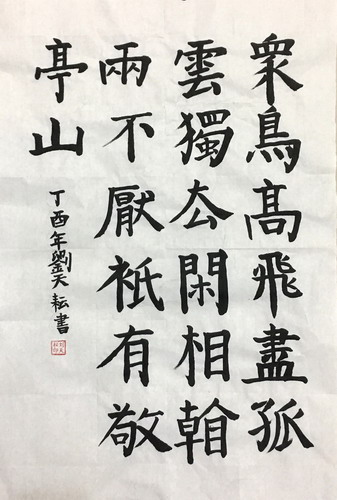 衆鳥髙飛盡孤
雲獨去閑相看
兩不厭衹有敬
亭山
丁酉年劉天耘書